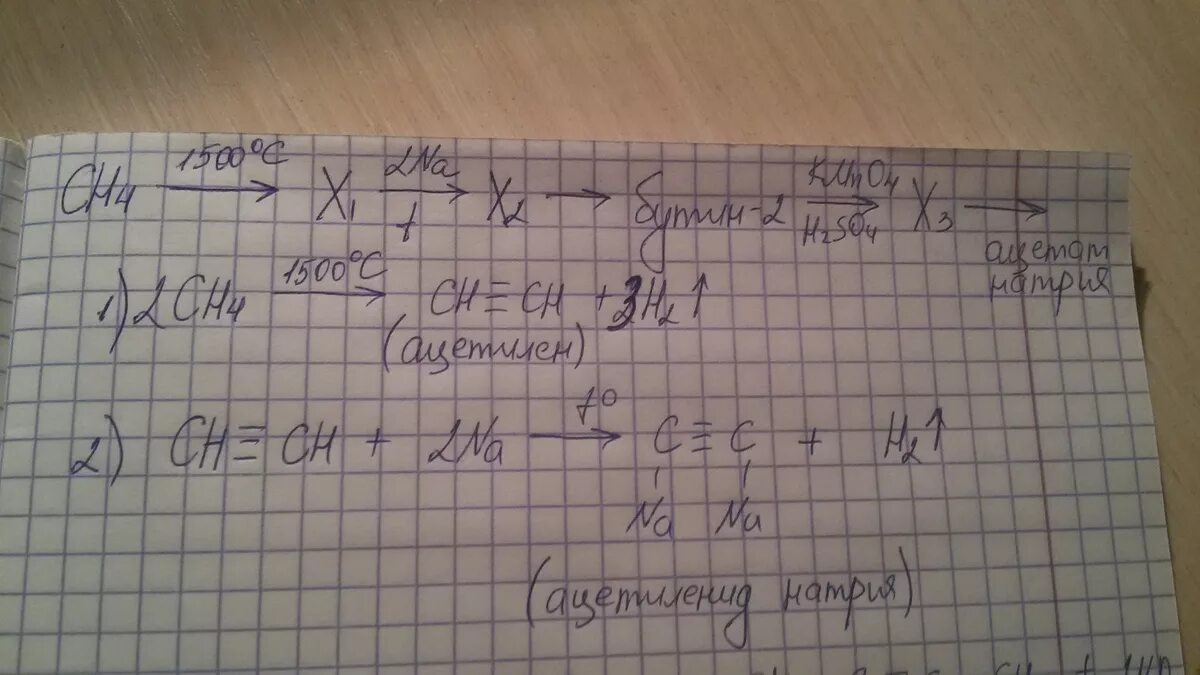 CH4 1500°C → X1 2Na → t X2 → бутин-2 KMnO4 → H2SO4 X3 → ацетат натрия
1) 2CH4 1500°C → CH≡CH + 3H2↑
(ацетилен)
2) CH≡CH + 2Na t° → C≡C + H2↑
Na Na
(ацетиленид натрия)